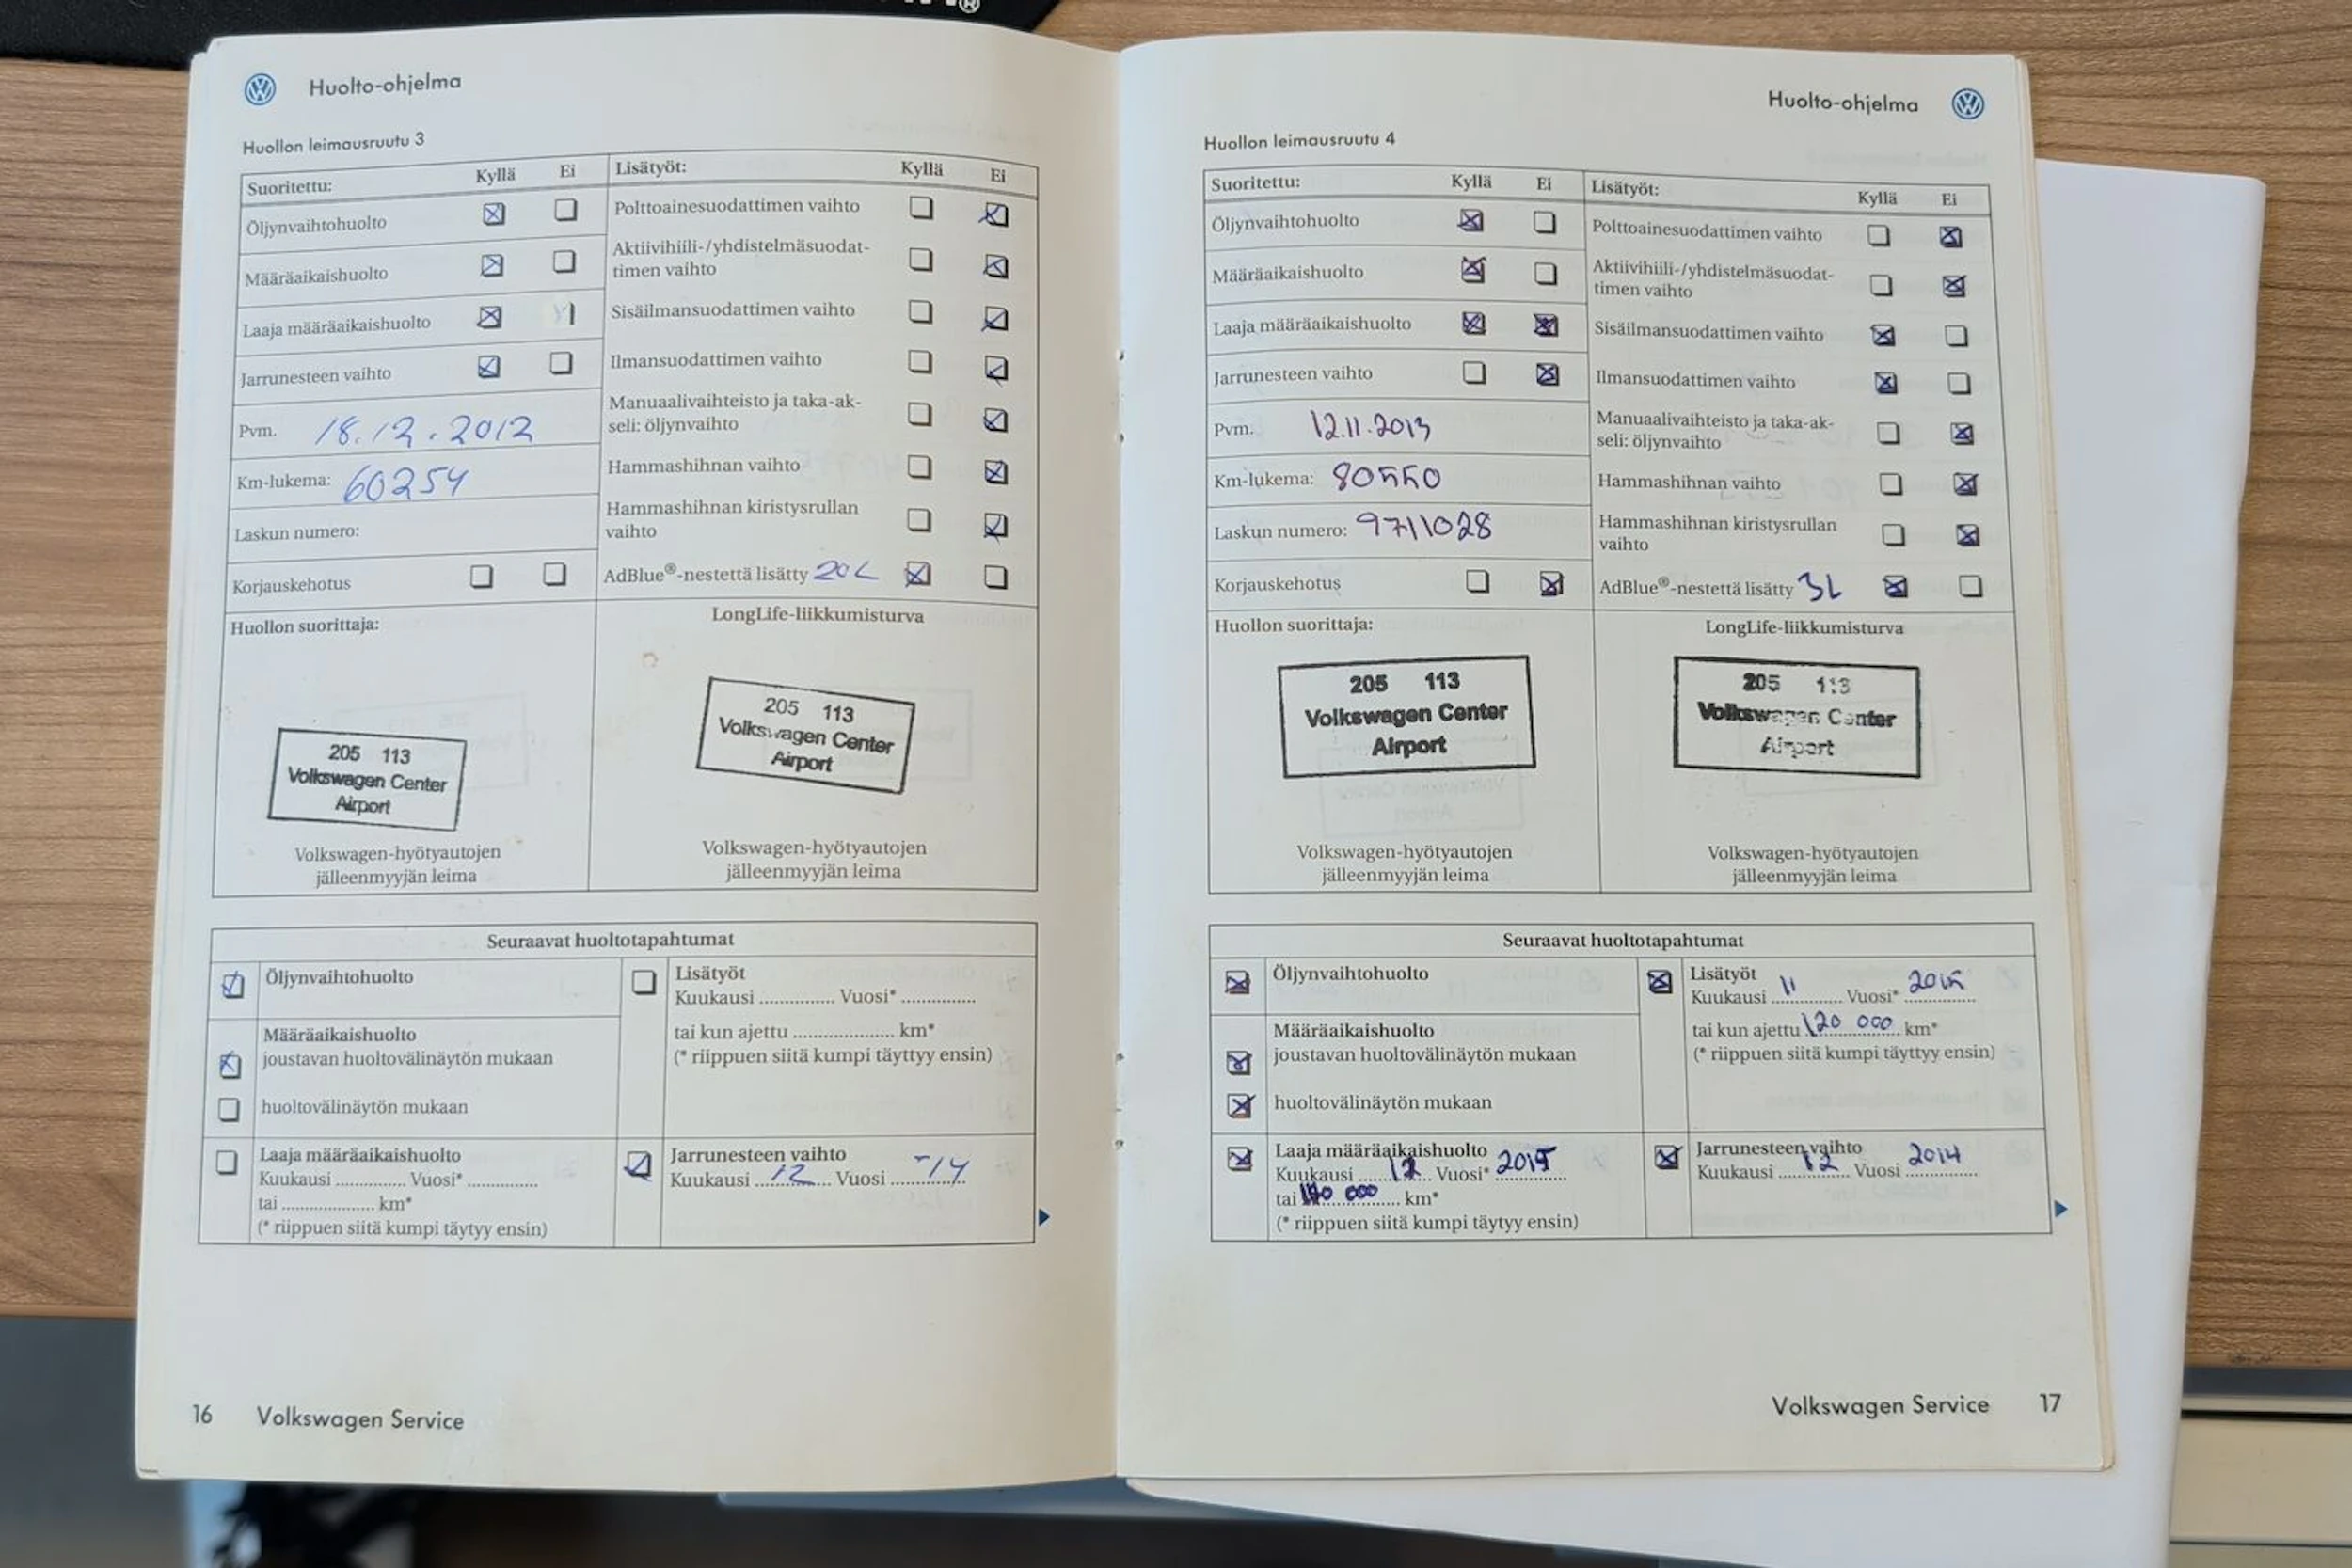 Huolto-ohjelma
Huollon leimausruutu 3
Suoritettu: Kyllä Ei
Öljynvaihtohuolto
Määräaikaishuolto
Laaja määräaikaishuolto
Jarrunesteen vaihto
Pvm. 18.12.2012
Km-lukema: 60254
Laskun numero:
Korjauskehotus
Lisätyöt: Kyllä Ei
Polttoainesuodattimen vaihto
Aktiivihiili-/yhdistelmäsuodat-
timen vaihto
Sisäilmansuodattimen vaihto
Ilmansuodattimen vaihto
Manuaalivaihteisto ja taka-ak-
seli: öljynvaihto
Hammashihnan vaihto
Hammashihnan kiristysrullan
vaihto
AdBlue®-nestettä lisätty 20L
Huollon suorittaja:
205 113
Volkswagen Center
Airport
Volkswagen-hyötyautojen
jälleenmyyjän leima
LongLife-liikkumisturva
205 113
Volkswagen Center
Airport
Volkswagen-hyötyautojen
jälleenmyyjän leima
Seuraavat huoltotapahtumat
Öljynvaihtohuolto
Määräaikaishuolto
joustavan huoltovälinäytön mukaan
huoltovälinäytön mukaan
Lisätyöt
Kuukausi .............. Vuosi* ..............
tai kun ajettu ................... km*
(* riippuen siitä kumpi täyttyy ensin)
Laaja määräaikaishuolto
Kuukausi ............. Vuosi* .............
tai ................. km*
(* riippuen siitä kumpi täytyy ensin)
Jarrunesteen vaihto
Kuukausi 12 Vuosi -14
16 Volkswagen Service
Huolto-ohjelma
Huollon leimausruutu 4
Suoritettu: Kyllä Ei
Öljynvaihtohuolto
Määräaikaishuolto
Laaja määräaikaishuolto
Jarrunesteen vaihto
Pvm. 12.11.2013
Km-lukema: 80550
Laskun numero: 9711028
Korjauskehotus
Lisätyöt: Kyllä Ei
Polttoainesuodattimen vaihto
Aktiivihiili-/yhdistelmäsuodat-
timen vaihto
Sisäilmansuodattimen vaihto
Ilmansuodattimen vaihto
Manuaalivaihteisto ja taka-ak-
seli: öljynvaihto
Hammashihnan vaihto
Hammashihnan kiristysrullan
vaihto
AdBlue®-nestettä lisätty 3L
Huollon suorittaja:
205 113
Volkswagen Center
Airport
Volkswagen-hyötyautojen
jälleenmyyjän leima
LongLife-liikkumisturva
205 113
Volkswagen Center
Airport
Volkswagen-hyötyautojen
jälleenmyyjän leima
Seuraavat huoltotapahtumat
Öljynvaihtohuolto
Määräaikaishuolto
joustavan huoltovälinäytön mukaan
huoltovälinäytön mukaan
Lisätyöt
Kuukausi 11 Vuosi* 2015
tai kun ajettu 120 000 km*
(* riippuen siitä kumpi täyttyy ensin)
Laaja määräaikaishuolto
Kuukausi 12 Vuosi* 2015
tai 000 km*
(* riippuen siitä kumpi täytyy ensin)
Jarrunesteen vaihto
Kuukausi 12 Vuosi 2014
Volkswagen Service 17